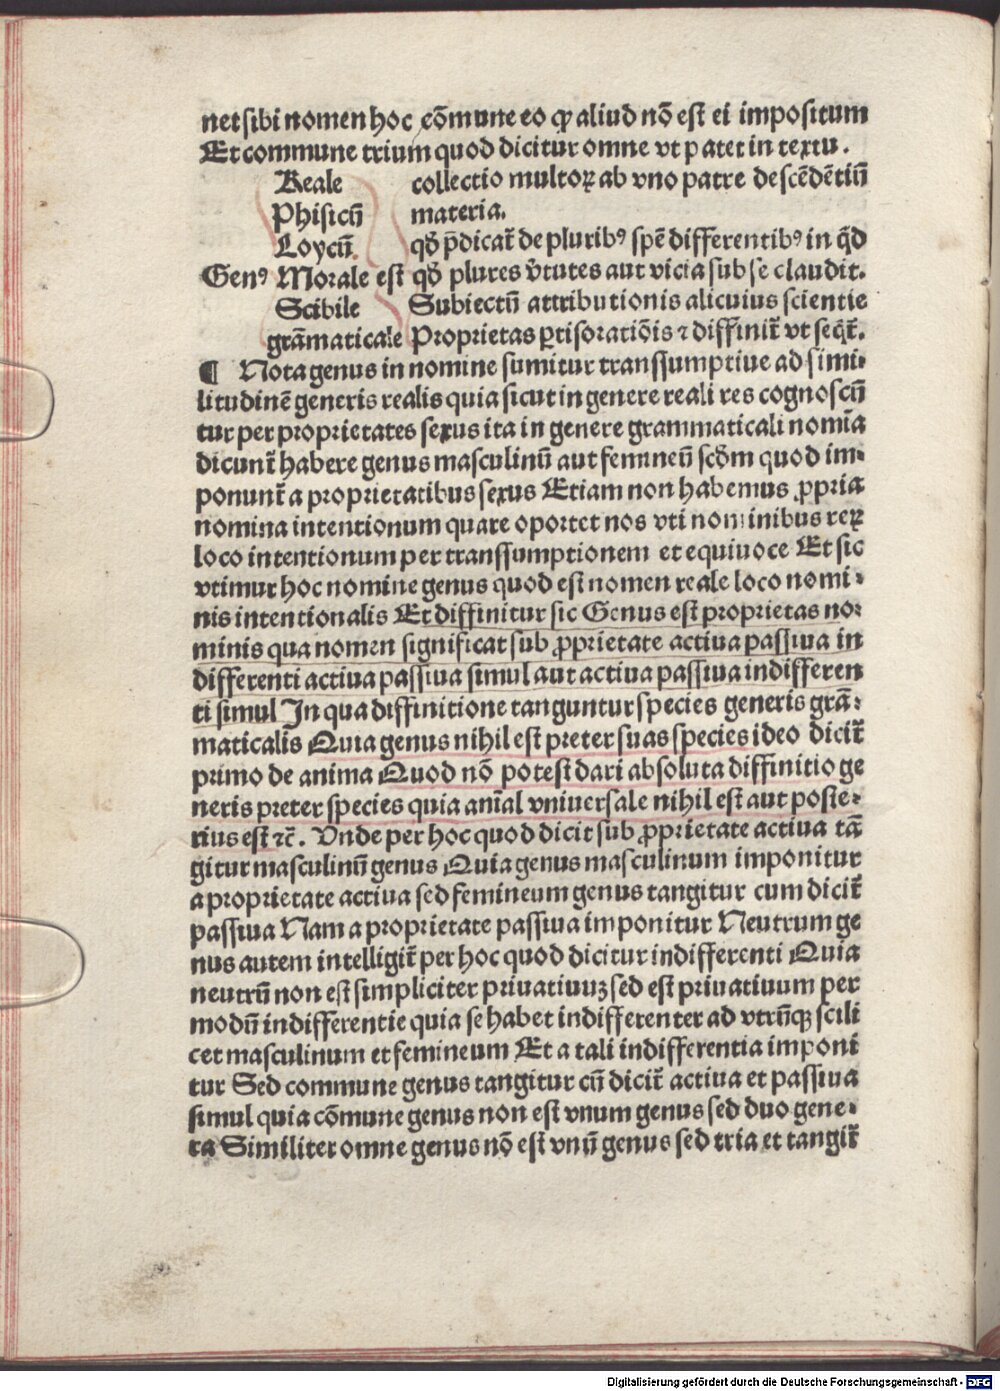 net sibi nomen hoc cōmune eo ꝙ aliud nō est ei impositum
Et commune trium quod dicitur omne vt patet in textu.
Reale collectio multoꝝ ab vno patre descēdētiū
Phisicū materia.
Loycū. qḋ p̄dicat̄ de plurib⁹ spē differentib⁹ in q̄d
Gen⁹ Morale est qḋ plures v̄tutes aut vicia sub se claudit.
Scibile Subiectū attributionis alicuius scientie
grāmaticale Proprietas ꝑtis oratiōis ⁊ diffinit̄ vt seq̄t̄.
¶ Nota genus in nomine sumitur transsumptiue ad simi-
litudinē generis realis quia sicut in genere reali res cognoscū
tur per proprietates sexus ita in genere grammaticali nomīa
dicunt̄ habere genus masculinū aut femineū scḋm quod im-
ponunt̄ a proprietatibus sexus Etiam non habemus ꝓpria
nomina intentionum quare oportet nos vti nominibus reꝝ
loco intentionum per transsumptionem et equiuoce Et sic
vtimur hoc nomine genus quod est nomen reale loco nomi-
nis intentionalis Et diffinitur sic Genus est proprietas no-
minis qua nomen significat sub ꝓprietate actiua passiua in
differenti actiua passiua simul aut actiua passiua indifferen
ti simul In qua diffinitione tanguntur species generis grā-
maticalis Quia genus nihil est preter suas species ideo dicit̄
primo de anima Quod nō potest dari absoluta diffinitio ge
neris preter species quia anīal vniuersale nihil est aut poste-
rius est ⁊c̄. Vnde per hoc quod dicit sub ꝓprietate actiua tā
gitur masculinū genus Quia genus masculinum imponitur
a proprietate actiua sed femineum genus tangitur cum dicit̄
passiua Nam a proprietate passiua imponitur Neutrum ge
nus autem intelligit̄ per hoc quod dicitur indifferenti Quia
neutrū non est simpliciter priuatiuuꝫ sed est priuatiuum per
modū indifferentie quia se habet indifferenter ad vtrūqꝫ scili
cet masculinum et femineum Et a tali indifferentia imponi
tur Sed commune genus tangitur cū dicit̄ actiua et passiua
simul quia cōmune genus non est vnum genus sed duo gene-
ra Similiter omne genus nō est vnū genus sed tria et tangit̄
Digitalisierung gefördert durch die Deutsche Forschungsgemeinschaft - DFG